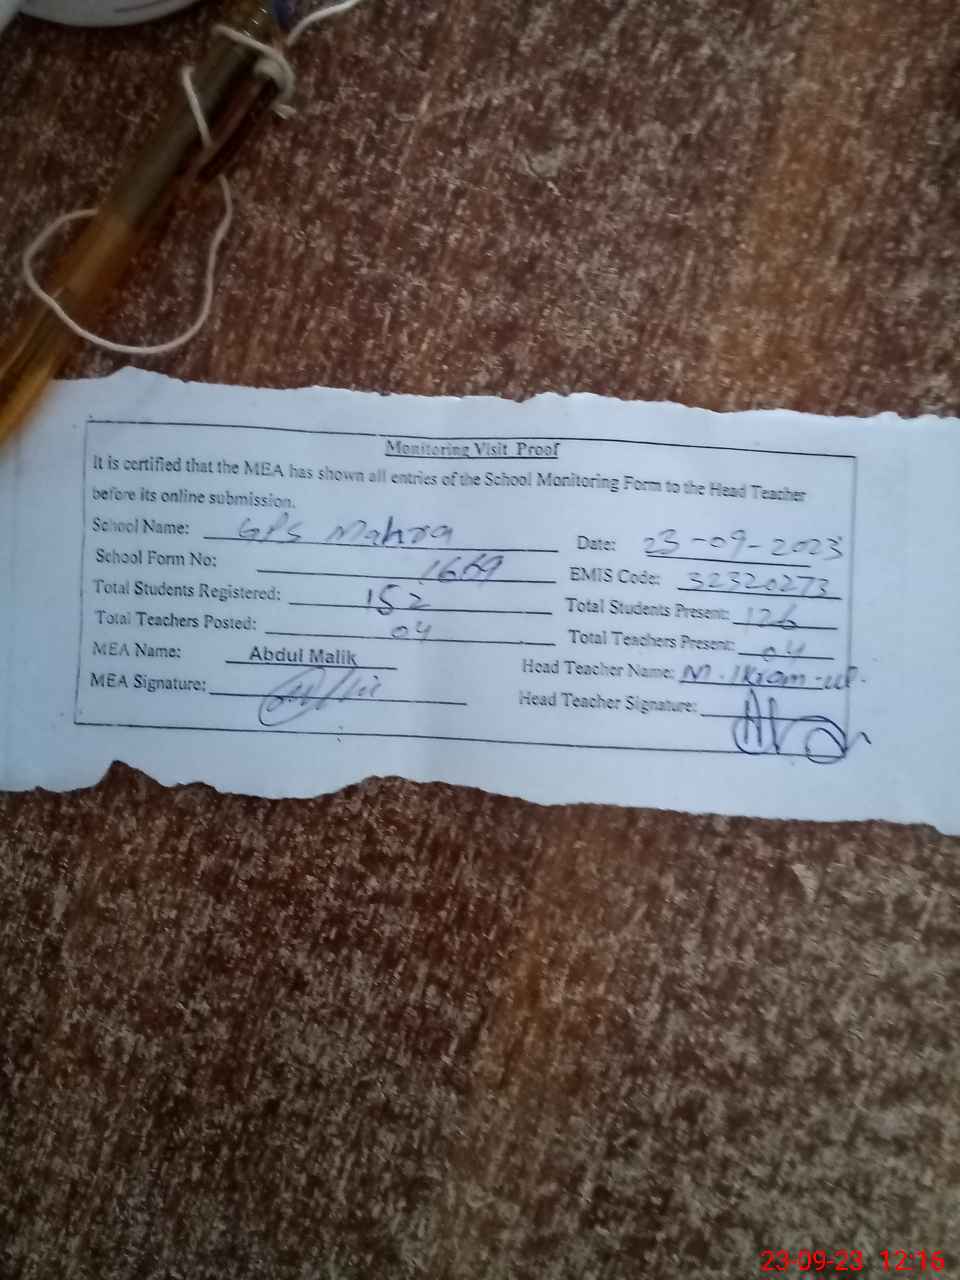 Monitoring Visit Proof
It is certified that the MEA has shown all entries of the School Monitoring Form to the Head Teacher
before its online submission.
School Name: GPS Mahra Date: 23-09-2023
School Form No: 1669 EMIS Code: 32320273
Total Students Registered: 152 Total Students Present: 126
Total Teachers Posted: 04 Total Teachers Present: 04
MEA Name: Abdul Malik Head Teacher Name: M. Ikram-ul
MEA Signature: Head Teacher Signature:
23-09-23 12:16